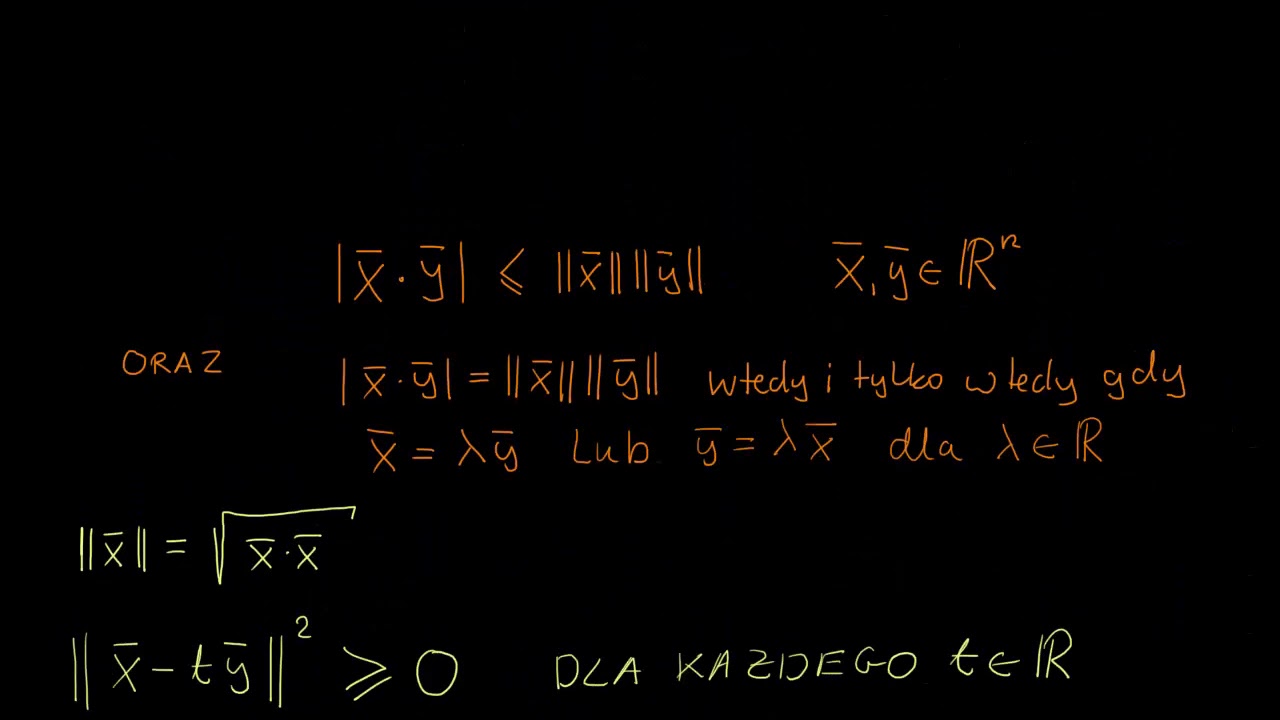 |x̅ · y̅| ⩽ ||x̅|| ||y̅||   x̅, y̅ ∈ ℝⁿ
ORAZ |x̅ · y̅| = ||x̅|| ||y̅|| wtedy i tylko wtedy gdy
x̅ = λy̅ Lub y̅ = λx̅ dla λ ∈ ℝ
||x̅|| = √(x̅ · x̅)
||x̅ - ty̅||² ⩾ 0 DLA KAZDEGO t ∈ ℝ